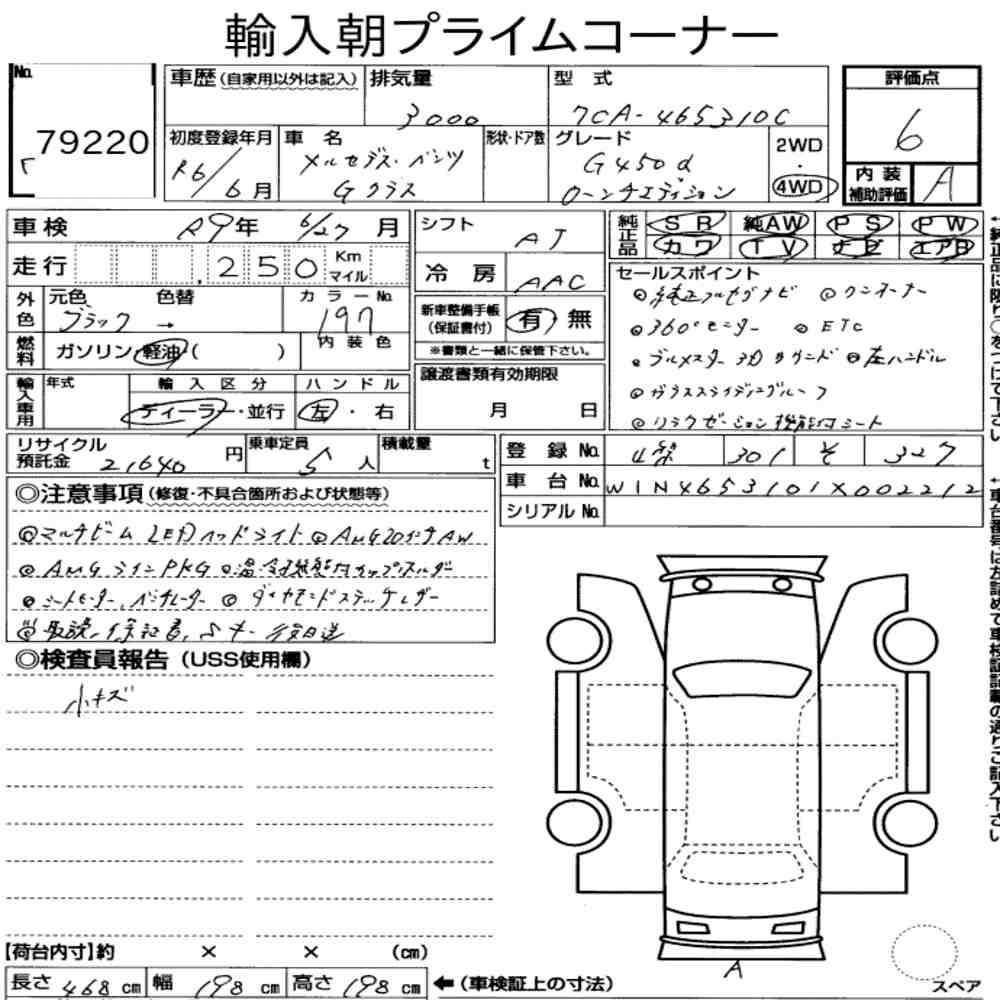 輸入朝プライムコーナー
No. 79220
車歴(自家用以外は記入)
排気量 3000
型式 7CA-465310C
評価点 6
初度登録年月 R6/6月
車名 メルセデス・ベンツ Gクラス
形状・ドア数
グレード G450d ローンチエディション
2WD・4WD
内装補助評価 A
車検 R9年 6/27月
シフト AT
純正品 SR 純AW PS PW
カワ TV ナビ エアB
走行 250 Km マイル
冷房 AAC
外色 元色 ブラック → 色替
カラーNo. 197
内装色
燃料 ガソリン・軽油( )
新車整備手帳(保証書付) 有 無
※書類と一緒に保管下さい。
セールスポイント
◎純正フルセグナビ ◎ワンオーナー
◎360°モニター ◎ETC
◎ブルメスター3Dサウンド ◎左ハンドル
◎ガラススライディングルーフ
◎リラクゼーション機能付シート
輸入車用 年式
輸入区分 ディーラー・並行
ハンドル 左・右
譲渡書類有効期限 月 日
リサイクル預託金 21640円
乗車定員 5人
積載量 t
登録No. 301 そ 327
車台No. W1N4653101X002212
シリアルNo.
◎注意事項(修復・不具合箇所および状態等)
◎マルチビームLEDヘッドライト ◎AMG20インチAW
◎AMGラインPKG ◎温冷機能付カップホルダー
◎シートヒーター、ベンチレーター ◎ダイヤモンドステッチレザー
取説、保証書、Sキー後日送
◎検査員報告(USS使用欄)
小キズ
【荷台内寸】約 × × (cm)
長さ 468 cm 幅 198 cm 高さ 198 cm
←(車検証上の寸法)
A
スペア
↑純正品に限り○をつけて下さい。
↑車台番号は左詰めで車検証記載の通りご記入下さい。